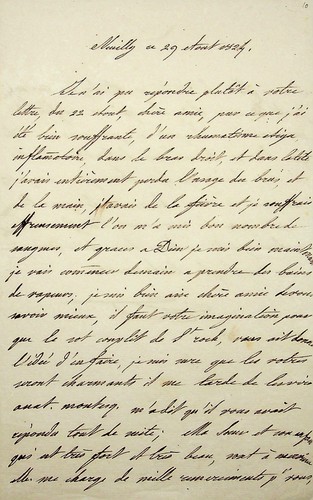 10
Neuilly ce 29 Aout 1824.
Je n'ai pu repondre plutôt à votre
lettre, du 22 aout, chère amie, parceque j'ai
été bien souffrante, d'un rhumatisme
inflamatoire, dans le bras droit, et dans
j'avais entièrement perdu l'usage du bras, et
de la main, j'avais de la fièvre et je souffrais
affreusement l'on m'a mis bon nombre de
sangsues, et graces a Dieu je suis bien maintenant
je vais commencer demain a prendre des bains
de vapeurs. je suis bien aise chère amie de vous
savoir mieux, il faut votre imagination pour
que le sot complit de St roch, vous ait donné
l'idée d'en faire, je suis sure que les votres
seront charmants il me tarde de les voir
m'a dit qu'il vous avait
repondu tout de suite. Ma Soeur et son enfant
qui est très fort et très beau, vont à merveille
elle me charge de mille remerciements pr vous,